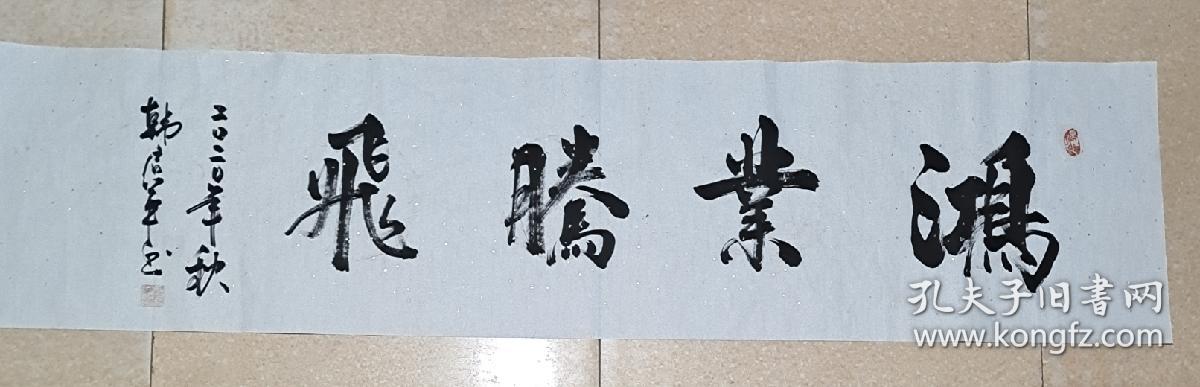 鴻業騰飛
二〇二〇年秋
韩
孔夫子旧書网
www.kongfz.com